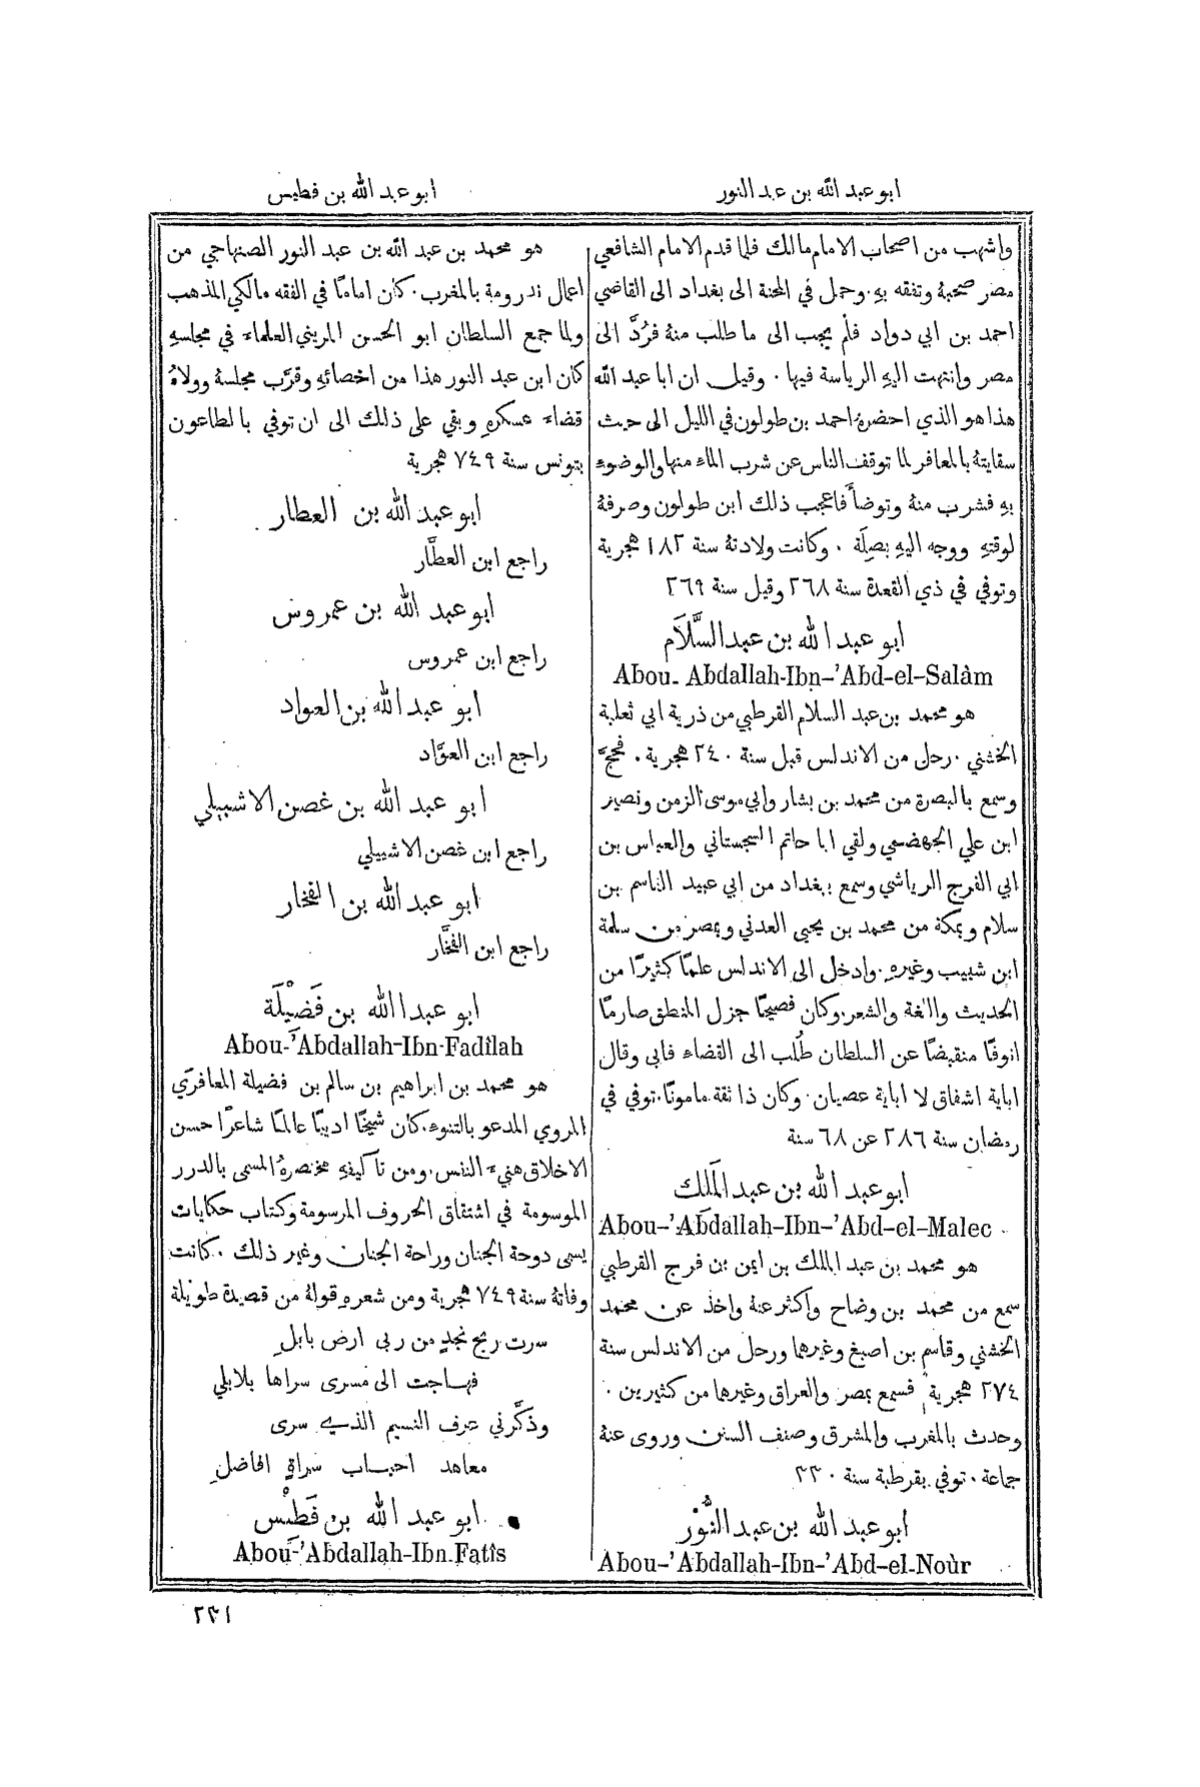 ابو عبد الله بن عبد النور
ابو عبد الله بن فطيس
واشهب من اصحاب الامام مالك فلما قدم الامام الشافعي
مصر صحبهُ وتفقه بهِ. وحمل في المحنة الى بغداد الى القاضي
احمد بن ابي دواد فلم يجب الى ما طلب منهُ فرُدَّ الى
مصر وانتهت اليهِ الرياسة فيها. وقيل ان ابا عبد الله
هذا هو الذي احضرهُ احمد بن طولون في الليل الى حيث
سقايتهُ بالمعافر لما توقف الناس عن شرب الماء منها والوضوء
بهِ فشرب منهُ وتوضأ فاعجب ذلك ابن طولون وصرفهُ
لوقتهِ ووجه اليهِ بصِلَة. وكانت ولادتهُ سنة ١٨٢ هجرية
وتوفي في ذي القعدة سنة ٢٦٨ وقيل سنة ٢٦٩
ابو عبد الله بن عبد السَّلَام
Abou- Abdallah-Ibn-'Abd-el-Salâm
هو محمد بن عبد السلام القرطبي من ذرية ابي ثعلبة
الخشني. رحل من الاندلس قبل سنة ٢٤٠ هجرية. فحجَّ
وسمع بالبصرة من محمد بن بشار وابي موسى الزمن ونصير
ابن علي الجهضمي ولقي ابا حاتم السجستاني والعباس بن
ابي الفرج الرياشي وسمع ببغداد من ابي عبيد القاسم بن
سلام وبمكة من محمد بن يحيى العدني وبمصر من سلمة
ابن شبيب وغيرهِ. وادخل الى الاندلس علمًا كثيرًا من
الحديث واللغة والشعر. وكان فصيحًا جزل المنطق صارمًا
انوفًا منقبضًا عن السلطان طُلب الى القضاء فابى وقال
اباية اشفاق لا اباية عصيان. وكان ذا ثقة مامونًا. توفي في
رمضان سنة ٢٨٦ عن ٦٨ سنة
ابو عبد الله بن عبد المَلِك
Abou-'Abdallah-Ibn-'Abd-el-Malec
هو محمد بن عبد الملك بن ايمن بن فرج القرطبي
سمع من محمد بن وضاح واكثر عنهُ واخذ عن محمد
الخشني وقاسم بن اصبغ وغيرهما ورحل من الاندلس سنة
٢٧٤ هجرية فسمع بمصر والعراق وغيرهما من كثيرين.
وحدث بالمغرب والمشرق وصنف السنن وروى عنهُ
جماعة. توفي بقرطبة سنة ٣٣٠
ابو عبد الله بن عبد النُّوْر
Abou-'Abdallah-Ibn-'Abd-el-Noùr
هو محمد بن عبد الله بن عبد النور الصنهاجي من
اعمال ندرومة بالمغرب. كان امامًا في الفقه مالكي المذهب
ولما جمع السلطان ابو الحسن المريني العلماء في مجلسهِ
كان ابن عبد النور هذا من اخصائهِ وقرَّب مجلسهُ وولاهُ
قضاء عسكرهِ وبقي على ذلك الى ان توفي بالطاعون
بتونس سنة ٧٤٩ هجرية
ابو عبد الله بن العطار
راجع ابن العطَّار
ابو عبد الله بن عمروس
راجع ابن عمروس
ابو عبد الله بن العواد
راجع ابن العوَّاد
ابو عبد الله بن غصن الاشبيلي
راجع ابن غصن الاشبيلي
ابو عبد الله بن الفخار
راجع ابن الفخَّار
ابو عبد الله بن فَضِيْلَة
Abou-'Abdallah-Ibn-Fadîlah
هو محمد بن ابراهيم بن سالم بن فضيلة المعافري
المروي المدعو بالتنوء. كان شيخًا اديبًا عالمًا شاعرًا حسن
الاخلاق هنيء النفس. ومن تآليفهِ مختصرهُ المسمى بالدرر
الموسومة في اشتقاق الحروف المرسومة وكتاب حكايات
يسمى دوحة الجنان وراحة الجنان وغير ذلك. كانت
وفاتهُ سنة ٧٤٩ هجرية ومن شعرهِ قولهُ من قصيدة طويلة
سرت ريح نجدٍ من ربى ارض بابلِ
فهاجت الى مسرى سراها بلابلي
وذكَّرني عرف النسيم الذي سرى
معاهد احباب سراةٍ افاضلِ
ابو عبد الله بن فَطِيْس
Abou-'Abdallah-Ibn-Fatîs
٢٣١